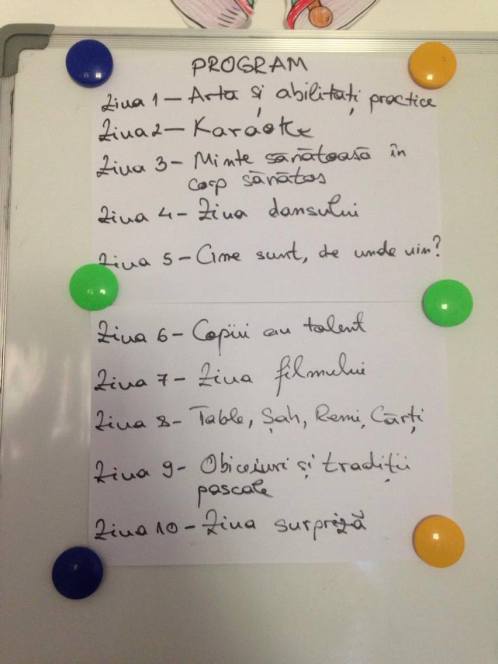 PROGRAM
Ziua 1 – Arta și abilități practice
Ziua 2 – Karaoke
Ziua 3 – Minte sănătoasă în
corp sănătos
Ziua 4 – Ziua dansului
Ziua 5 – Cine sunt, de unde vin?
Ziua 6 – Copiii au talent
Ziua 7 – Ziua filmului
Ziua 8 – Table, Șah, Remi, Cărți
Ziua 9 – Obiceiuri și tradiții
pascale
Ziua 10 – Ziua surpriză